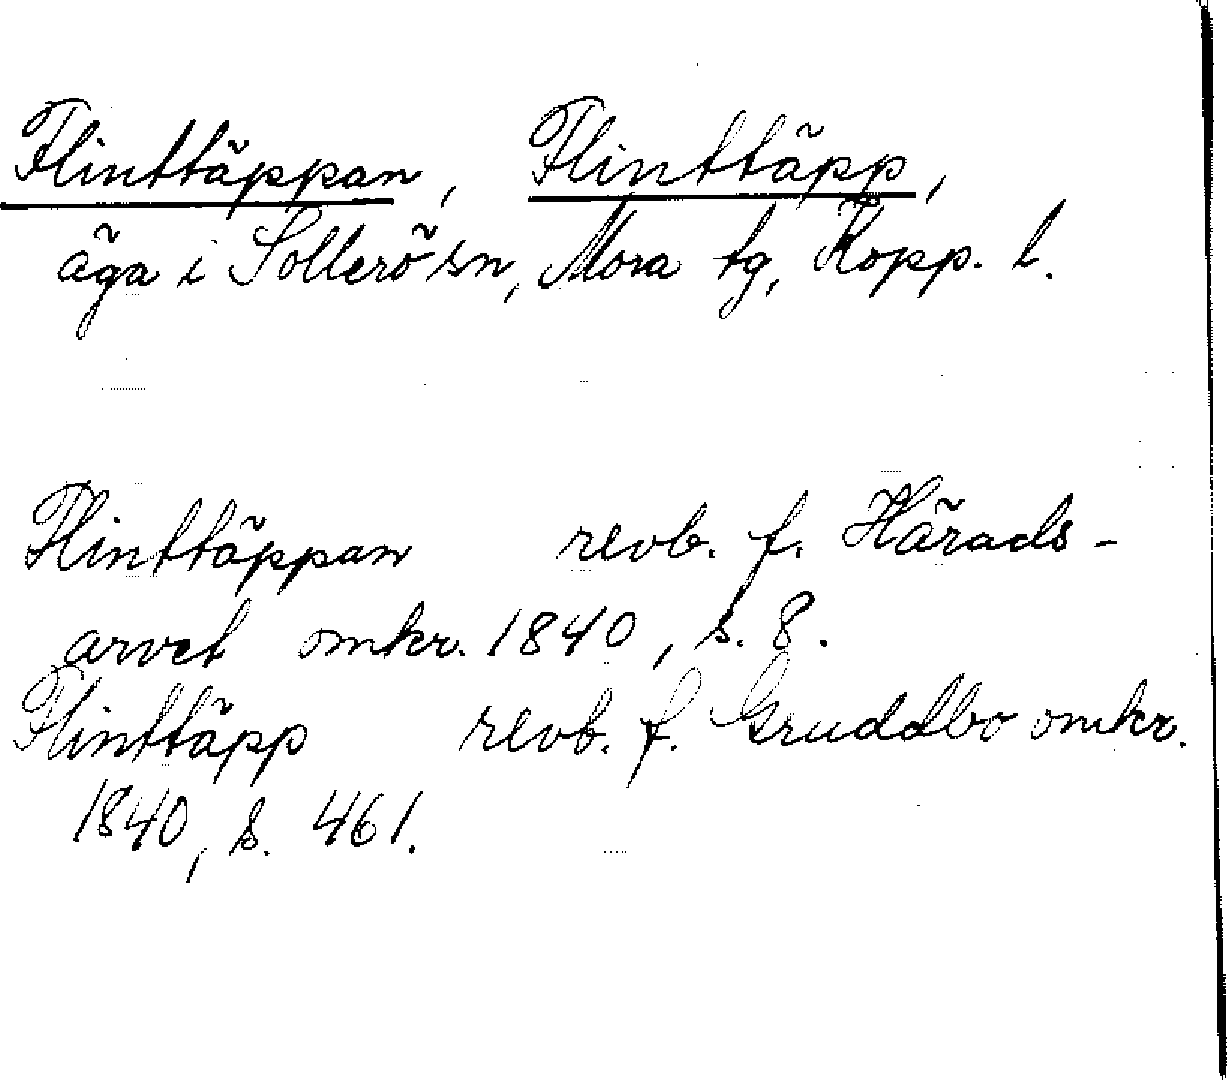 Flinttäppan, Flinttäpp,
äga i Sollerö sn, Mora tg, Kopp. l.
Flinttäppan revb. f. Härads-
arvet omkr. 1840, s. 8.
Flinttäpp revb. f. Gruddbo omkr.
1840, s. 461.